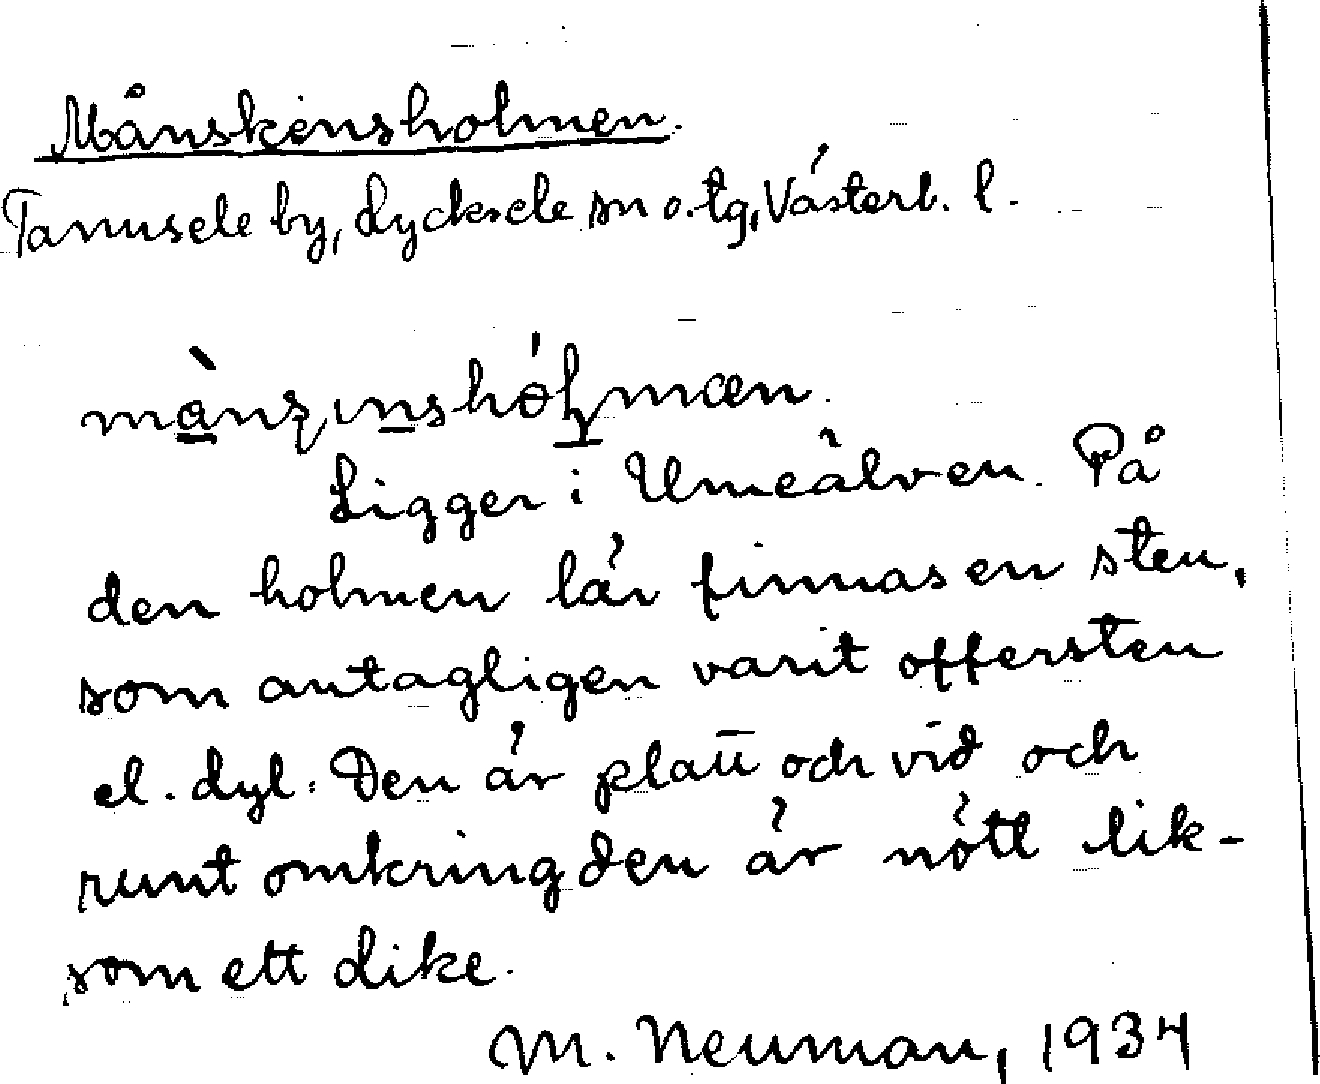 Månskensholmen.
Tannsele by, Lycksele sn o. tg, Västerb. l.
Ligger i Umeälven. På
den holmen lär finnas en sten,
som antagligen varit offersten
el. dyl. Den är platt och vid och
runt omkring den är nött lik-
som ett dike.
M. Neuman, 1934